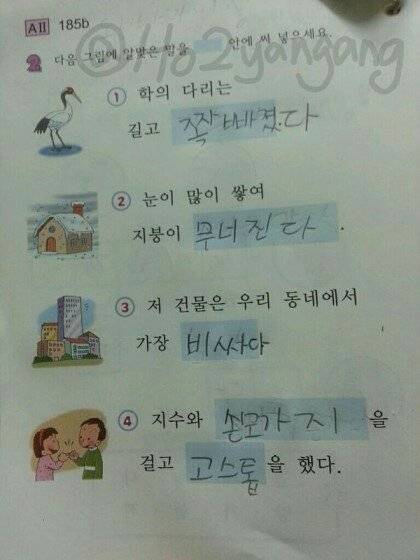 AⅡ 185b
@Ho2yangang
2 다음 그림에 알맞은 말을 안에 써 넣으세요.
① 학의 다리는
길고 쫙빠졌.다
② 눈이 많이 쌓여
지붕이 무너진다.
③ 저 건물은 우리 동네에서
가장 비싸다
④ 지수와 손모가지을
걸고 고스톱을 했다.